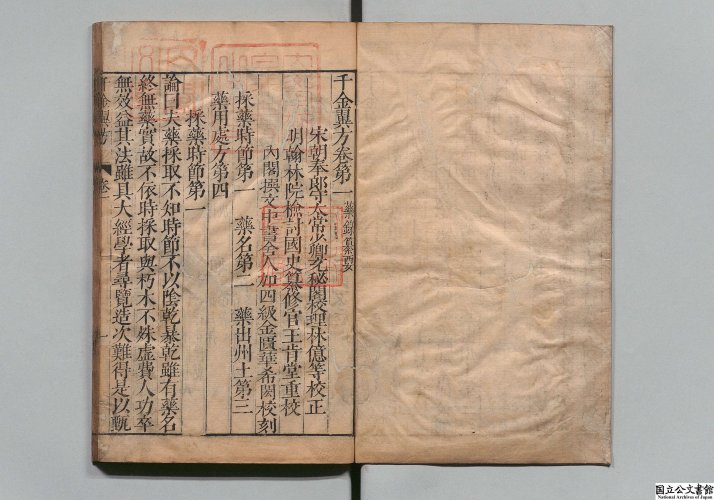 千金翼方卷第一 藥錄纂要
宋朝奉郎守太常少卿充秘閣校理林億等校正
明翰林院檢討國史纂修官王肯堂重校
內閣撰文中書舍人加四級金匱華希閎校刻
採藥時節第一 藥名第二 藥出州土第三
藥用處方第四
採藥時節第一
論曰夫藥採取不知時節不以陰乾暴乾雖有藥名
終無藥實故不依時採取與朽木不殊虛費人功卒
無效益其法雖具大經學者尋覽造次難得是以甄
千金翼方 卷一
国立公文書館
National Archives of Japan